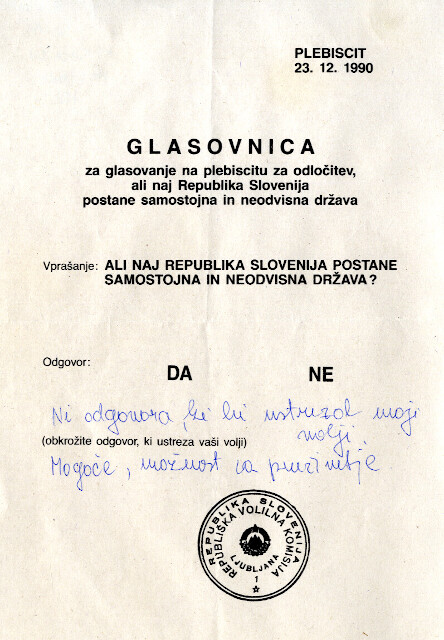 PLEBISCIT
23. 12. 1990
GLASOVNICA
za glasovanje na plebiscitu za odločitev,
ali naj Republika Slovenija
postane samostojna in neodvisna država
Vprašanje: ALI NAJ REPUBLIKA SLOVENIJA POSTANE
SAMOSTOJNA IN NEODVISNA DRŽAVA?
Odgovor:
DA NE
Ni odgovora, ki bi ustrezal moji
volji.
(obkrožite odgovor, ki ustreza vaši volji)
Mogoče, možnost za
REPUBLIKA SLOVENIJA
REPUBLIŠKA VOLILNA KOMISIJA
LJUBLJANA
1